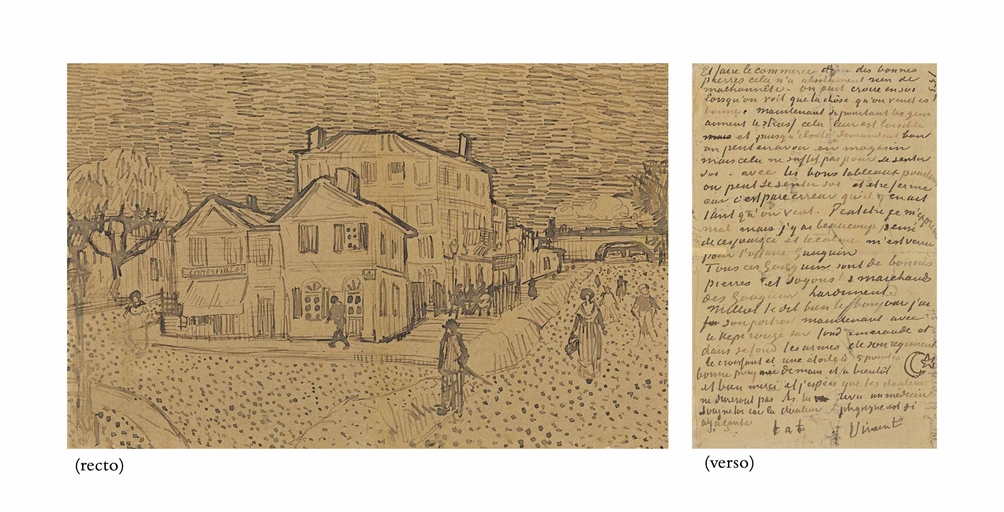 COMESTIBLES
Et faire le commerce des bonnes
pierres cela n'a absolument rien de
malhonnête. on peut croire en soi
lorsqu'on voit que la chose qu'on vend est
bonne, maintenant si pourtant les gens
aiment le strass cela leur est loisible
mais et puisqu'ils le demandent bon
on peut en avoir en magasin
mais cela ne suffit pas pour se sentir
soi - avec les bons tableaux pourtant
on peut se sentir soi et etre ferme
car c'est pure erreur qu'il y en ait
tant qu'on veut. Peut etre je m'
mal mais j'y ai beaucoup pensé
de ces jours ci et le calme m'est venu
pour l'affaire Gauguin
Tous ces Gauguins sont de bonnes
pierres et soyons les marchands
des Gauguin hardiment.
Milliet te dit bien le bonjour j'ai
son portrait maintenant avec
le kepi rouge sur fond emeraude et
dans ce fond les armes de son regiment
le croissant et une étoile à 5 pointes
bonne poignée de main et à bientôt
et bien merci et j'espère que les douleurs
ne dureront pas As tu revu un médecin
soigne toi car la douleur physique est si
agaçante
t à t Vincent
(recto)
(verso)